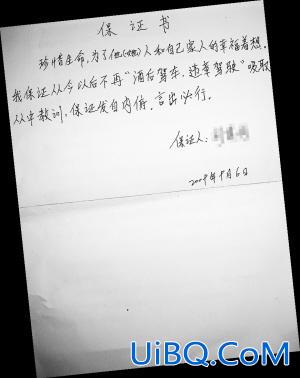 保证书
珍惜生命，为了他(她)人和自己家人的幸福着想。
我保证从今以后不再“酒后驾车、违章驾驶”吸取
从中教训，保证发自内俯，言出必行。
保证人：
2009年 月6日
UiBQ.CoM